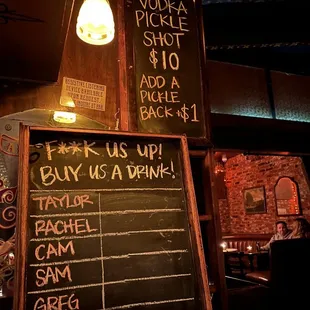 VODKA
PICKLE
SHOT
$10
ADD A
PICKLE
BACK +$1
F**K US UP!
BUY US A DRINK!
TAYLOR
RACHEL
CAM
SAM
GREG